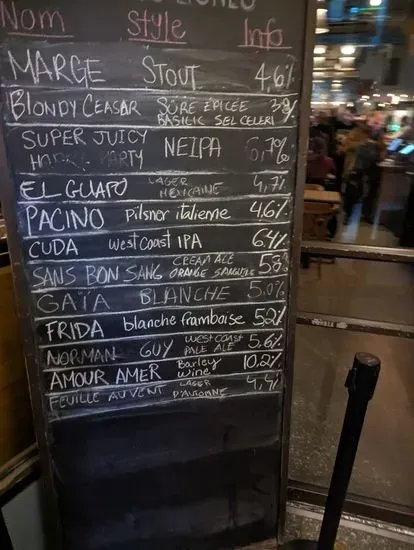 Nom Style Info
MARGE STOUT 4,6%
BLONDY CEASAR SÛRE ÉPICÉE
BASILIC SEL CELERI
SUPER JUICY
PARTY NEIPA 6,7%
EL GUAPO LAGER
MEXICAINE 4,7%
PACINO pilsner italienne 4.6%
CUDA westcoast IPA 6.4%
SANS BON SANG CREAM ALE
ORANGE SANGUINE
GAÏA BLANCHE 5.0%
FRIDA blanche framboise 5.2%
NORMAN GUY WESTCOAST
PALE ALE 5.6%
AMOUR AMER Barley
wine 10.2%
FEUILLE AU VENT LAGER
D'AUTOMNE